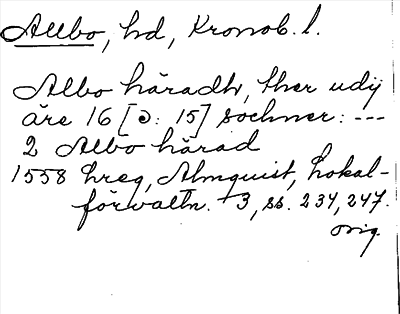 Allbo, hd, Kronob. l.
Albo häradh, ther udij
äre 16 [ɔ: 15] sochner: ---
2 Albo härad
1558 hreg, Almquist, Lokal-
förvaltn. 3, ss. 234, 247.
orig.